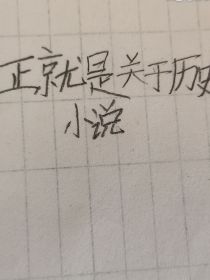 正就是关于历史
小说